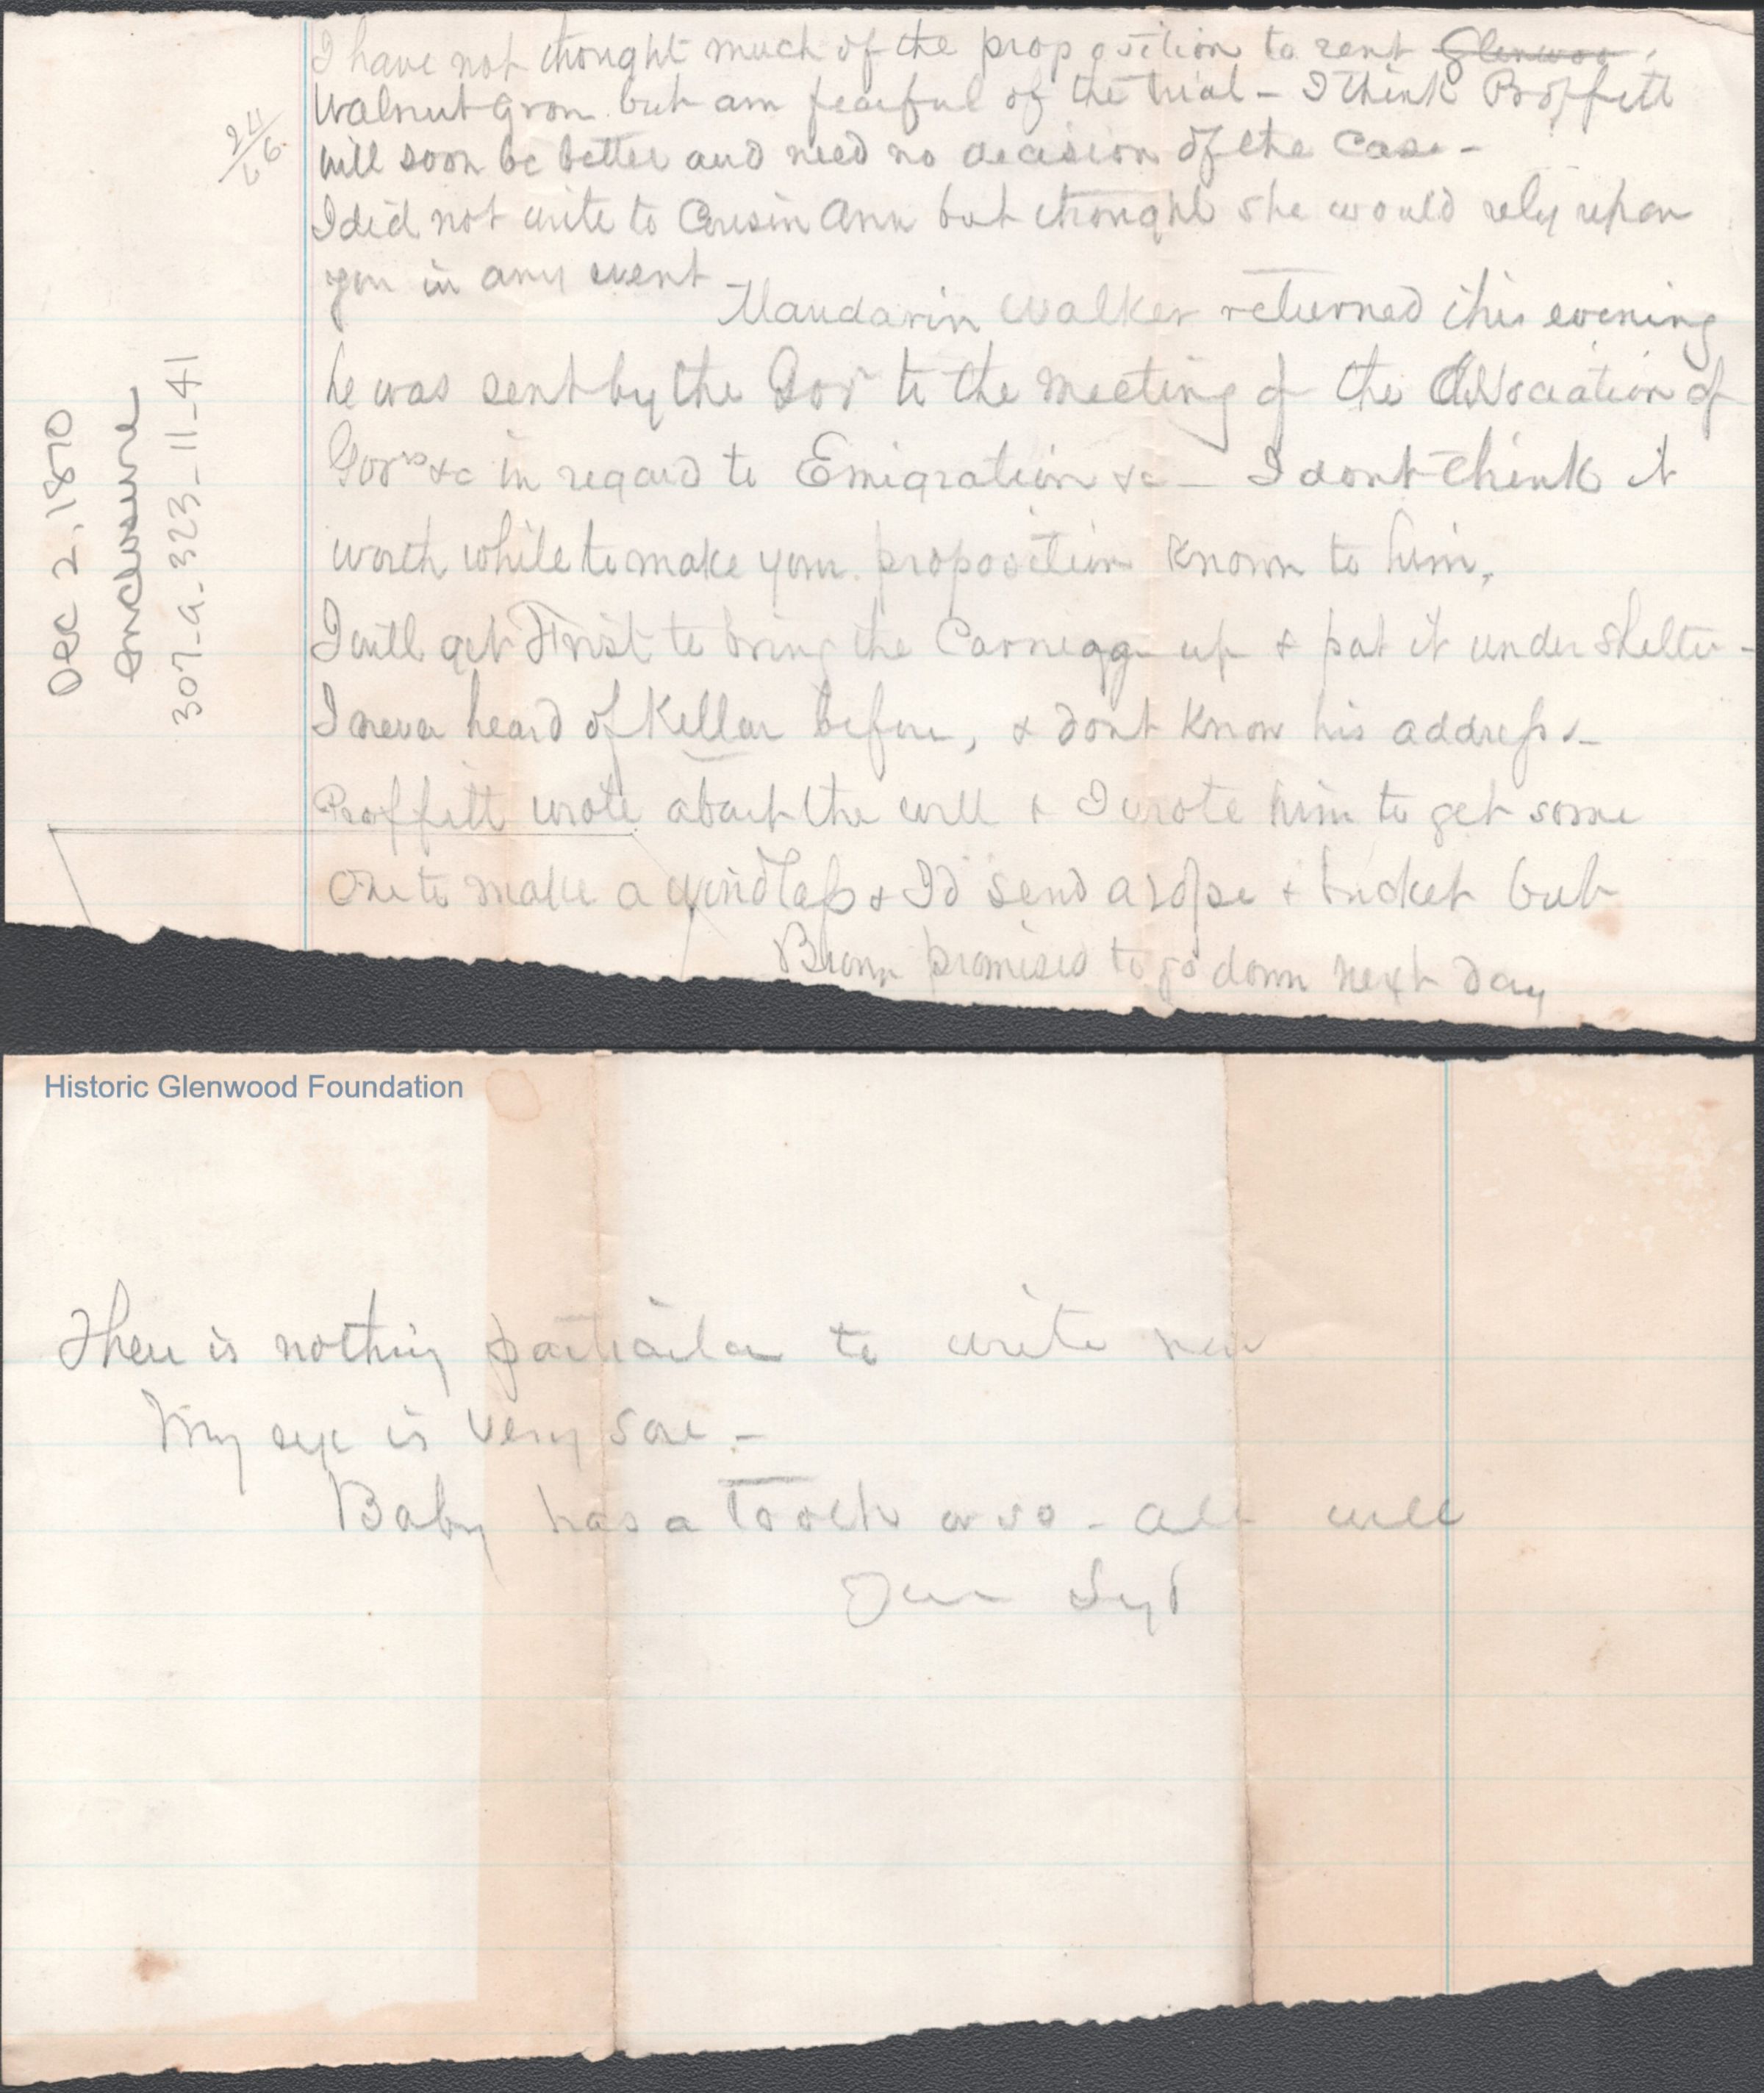 I have not thought much of the proposition to rent Glenwoo
Walnut Grov. but am fearful of the trial - I think Proffitt
will soon be better and need no decision of the case -
I did not write to Cousin Ann but thought she would rely upon
you in any event
Mandarin Walker returned this evening
he was sent by the Govr to the meeting of the Association of
Govrs &c in regard to Emigration &c - I dont think it
worth while to make your proposition known to him.
I will get to bring the Carriage up & put it under shelter -
I never heard of Kellar before, & dont know his address -
Proffitt wrote about the well & I wrote him to get some
One to make a windlass & I'd send a rope & bucket but
Brown promised to go down next day
24/66.
Dec 2, 1870
enclosure
307-a-323-11-41
Historic Glenwood Foundation
There is nothing particular to write now
My eye is very sore -
Baby has a Tooth or so - all well